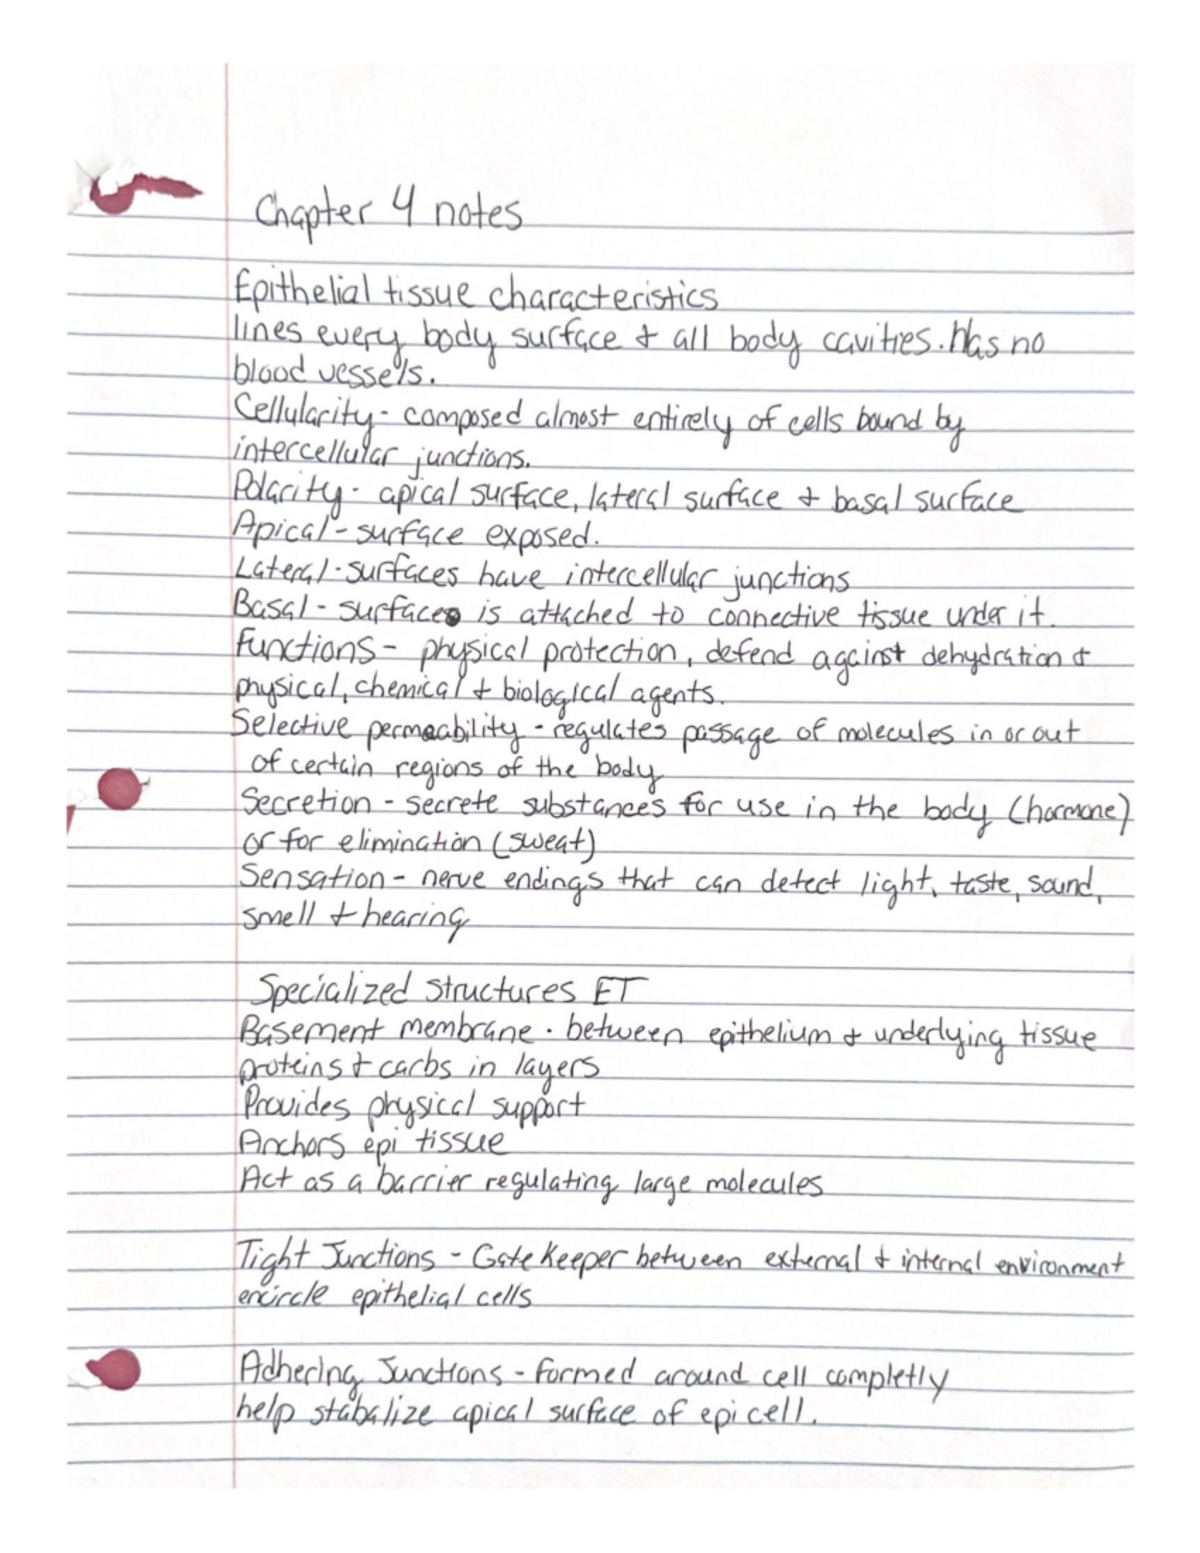 Chapter 4 notes
Epithelial tissue characteristics
lines every body surface + all body cavities. Has no
blood vessels.
Cellularity - composed almost entirely of cells bound by
intercellular junctions.
Polarity - apical surface, lateral surface + basal surface
Apical - surface exposed.
Lateral - surfaces have intercellular junctions
Basal - surface is attached to connective tissue under it.
Functions - physical protection, defend against dehydration +
physical, chemical + biological agents.
Selective permeability - regulates passage of molecules in or out
of certain regions of the body
Secretion - secrete substances for use in the body (hormone)
or for elimination (sweat)
Sensation - nerve endings that can detect light, taste, sound,
smell + hearing
Specialized structures ET
Basement membrane - between epithelium + underlying tissue
proteins + carbs in layers
Provides physical support
Anchors epi tissue
Act as a barrier regulating large molecules
Tight Junctions - Gate Keeper between external + internal environment
encircle epithelial cells
Adhering Junctions - formed around cell completly
help stabalize apical surface of epi cell.